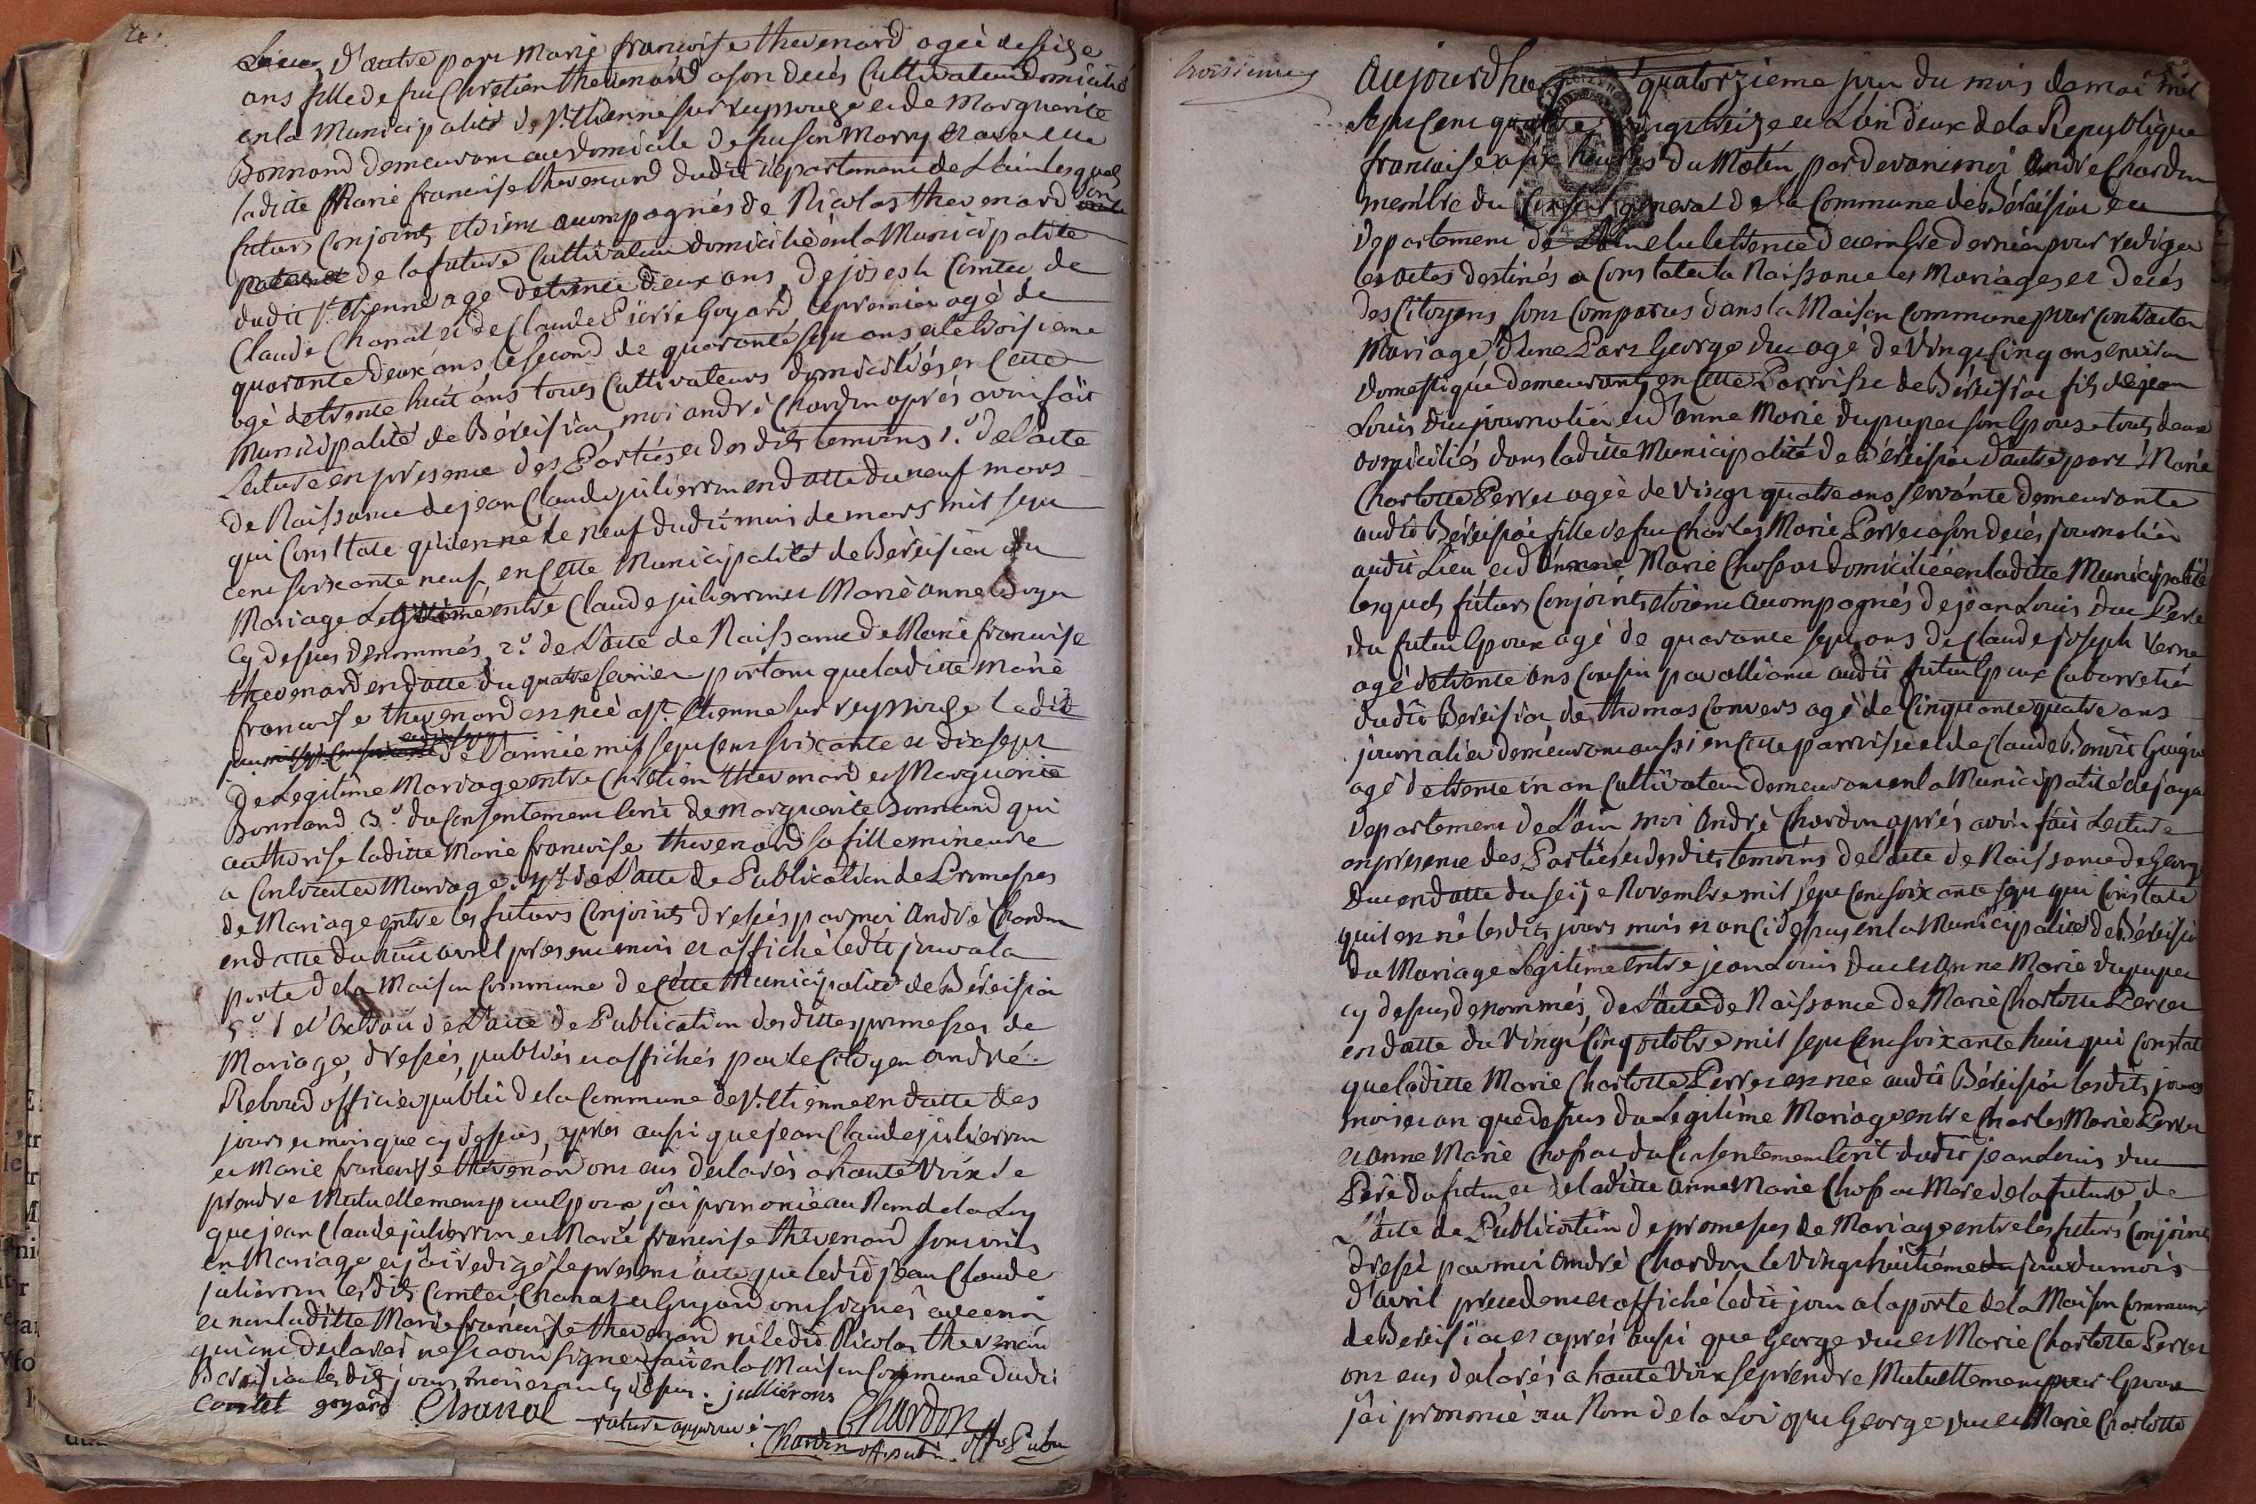 Lieu, d'autre part Marie francoise thevenard agée de seize
ans fille de feu Chretien thevenard a son decés Cultivateur domicilié
en la Municipalité de St. Etienne sur reyssouze et de Marguerite
Bonnand demeurant au domicile de feu son Marry et avec elle
laditte Marie francoise thevenard dudit département de L'ain lesquels
futurs Conjoints etoient accompagnés de Nicolas thevenard
de la future Cultivateur domicilié en la Municipalité
dudit St. Etienne agé de trente deux ans, de joseph Comtet de
Claude Chanal et de Claude Pierre Goyard le premier agé de
quarante deux ans le second de quarante sept ans et le troisieme
agé de trente huit ans tous Cultivateurs domiciliés en Cette
Municipalité de Béreisiat, moi andré Chardon aprés avoir fait
Lecture en presence des Parties et des dits temoins 1.º de L'acte
de Naissance de jean Claude julierron en datte du neuf mars
qui Constate qu'il est né le neuf dudit mois de mars mil sept
cent soixante neuf en Cette Municipalité de Béreisiat du
Mariage Legitime entre Claude julierron et Marie anne Boyer
Cy dessus denommés, 2.º de L'acte de Naissance de Marie francoise
thevenard en datte du quatre fevrier portant que laditte Marie
francoise thevenard est née a St. Etienne sur reyssouze ledit
jour de L'année mil sept cent soixante et dix sept
de Legitime Mariage entre Chretien thevenard et Marguerite
Bonnand 3.º du Consentement Ecrit de Marguerite Bonnand qui
authorise laditte Marie francoise thevenard sa fille mineure
a Contracter Mariage. 4.º de L'acte de Publication de Promesses
de Mariage entre les futurs Conjoints dressés par moi André Chardon
en datte du huit avril present mois et affiché ledit jour a la
porte de la Maison Commune de Cette Municipalité de Béreisiat
5.º de l'Extrait de L'acte de Publication des dittes promesses de
Mariage, dressés, publiés et affichés par le Citoyen andré
Reboud officier public de la Commune de St. Etienne en datte des
jours et mois que cy dessus, aprés aussi que jean Claude julierron
et Marie francoise thevenard ont eus declarés a haute Voix se
prendre Mutuellement pour Epoux j'ai prononcé au Nom de la Loy
que jean Claude julierron et Marie francoise thevenard sont unis
en Mariage et j'ai redigé le present acte que ledit jean Claude
julierron lesdits Comtet Chanal et Goyard ont signés avec moi
et non laditte Marie francoise thevenard ni ledit Nicolas thevenard
qui ont declarés ne scavoir signer fait en la Maison Commune dudit
Bereisiat lesdits jours mois et an cy dessus. julliérons
Comtet goyard Chanal Chardon
rature approuvé off. Public
Chardon off. publi.
troisieme
Aujourd'hui quatorzieme jour du mois de mai mil
sept Cent quatre vingt treize et L'an deux de la Republique
francaise a six heures du Matin, par devant moi André Chardon
membre du Conseil general de la Commune de Béreisiat en
departement de L'ain elu le trente decembre dernier pour rediger
les actes destinés a Constater la Naissance les Mariages et decés
des Citoyens sont Comparus dans la Maison Commune pour Contracter
Mariage d'une Part George Duc agé de vingt Cinq ans environ
domestique demeurant en Cette Parroisse de Béreisiat fils de jean
Louis Duc journalier et d'anne Marie dupupet son Epouse touts deux
domiciliés dans laditte Municipalité de Béreisiat d'autre part Marie
Charlotte Perret agée de vingt quatre ans servante demeurante
audit Béreisiat fille de feu Charles Marie Perret a son decés journalier
audit Lieu et d'Anne Marie Chossat domiciliée en laditte Municipalité
lesquels futurs Conjoints etoient accompagnés de jean Louis Duc Pere
du futur Epoux agé de quarante sept ans de Claude joseph Verne
agé de trente ans Cousin par alliance audit futur Epoux Cabarretier
dudit Bereisiat de thomas Convers agé de Cinquante quatre ans
journalier demeurant aussi en Cette parroisse et de Claude Benoit Guigue
agé de trente un an Cultivateur demeurant en la Municipalité de jaya
departement de L'ain moi André Chardon aprés avoir fait Lecture
en presence des Parties et des dits temoins de L'acte de Naissance de George
Duc en datte du seize Novembre mil sept Cent soixante sept qui Constate
qu'il est né lesdits jours mois et an ci dessus en la Municipalité de Béreisiat
du Mariage Legitime entre jean Louis Duc et Anne Marie dupupet
cy dessus denommés, de L'acte de Naissance de Marie Charlotte Perret
en datte du Vingt Cinq octobre mil sept Cent soixante huit qui Constate
que laditte Marie Charlotte Perret est née audit Béreisiat lesdits jours
mois et an que dessus du Legitime Mariage entre Charles Marie Perret
et anne Marie Chossat du Consentement Ecrit dudit jean Louis Duc
Pere du futur et de laditte anne Marie Chossat Mere de la future, de
L'acte de Publication de promesses de Mariage entre les futurs Conjoints
dressé par moi André Chardon le Vingt huitieme jour du mois
d'avril precedent et affiché ledit jour a la porte de la Maison Commune
de Bereisiat et aprés aussi que George Duc et Marie Charlotte Perret
ont eus declarés a haute Voix se prendre Mutuellement pour Epoux
j'ai prononcé au Nom de la Loi que George Duc et Marie Charlotte